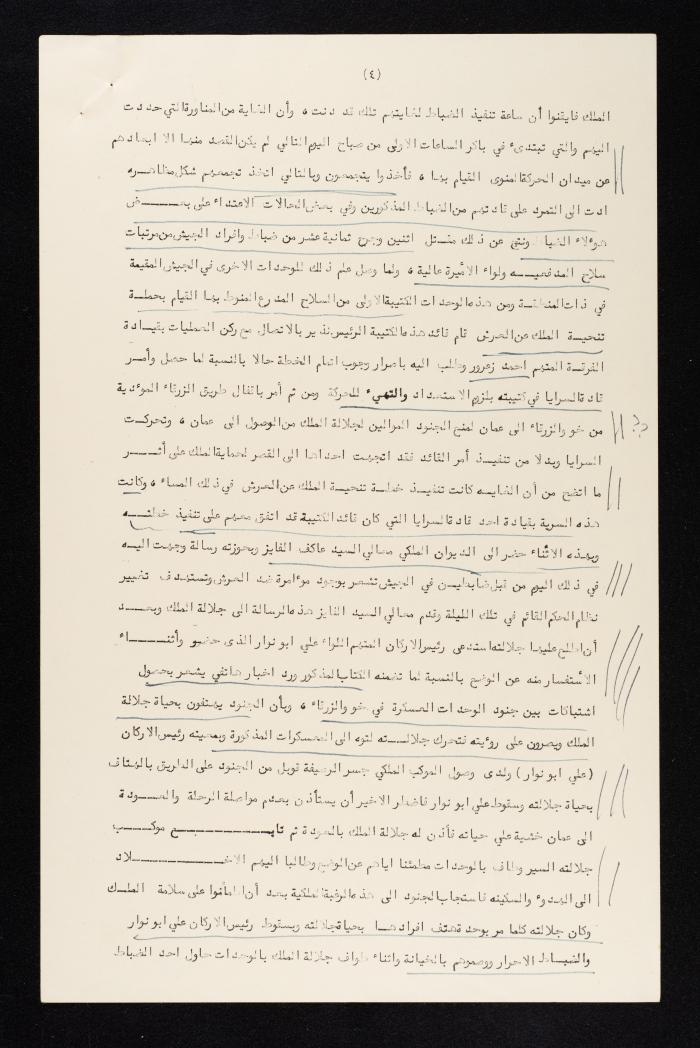 (٤)
الملك فايقنوا أن ساعة تنفيذ الضباط لغايتهم تلك قد دنت ، وأن الغاية من المناورة التي حددت
اليهم والتي تبتدىء في باكر الساعات الاولى من صباح اليوم التالي لم يكن القصد منها الا ابعادهم
عن ميدان الحركة المنوى القيام بها ، فأخذوا يتجمعون وبالتالي اتخذ تجمعهم شكل مظاهره
ادت الى التمرد على قادتهم من الضباط المذكورين وفي بعض الحالات الاعتداء على بعـــــض
هوءلاء الضباط ونتج عن ذلك مقـتل اثنين وجرح ثمانية عشر من ضباط وافراد الجيش من مرتبات
سلاح المدفعيـــه ولواء الأميرة عالية ، ولما وصل علم ذلك للوحدات الاخرى في الجيش المقيمة
في ذات المنطقـة ومن هذه الوحدات الكتيبة الاولى من السلاح المدرع المنوط بها القيام بخطـة
تنحيـة الملك عن العرش قام قائد هذه الكتيبة الرئيس نذير بالاتصال مع ركن العمليات بقيـادة
الفرقـة المتهم احمد زعرور وطلب اليه باصرار وجوب اتمام الخطة حالا بالنسبة لما حصل وأمـر
قادة السرايا في كتيبته بلزوم الاستعـداد والتهيء للحركة ومن ثم أمر باقفال طريق الزرقاء الموءدية
من خو والزرقاء الى عمان لمنع الجنود الموالين لجلالة الملك من الوصول الى عمان ، وتحركـت
السرايا وبدلا من تنفيـذ أمر القائد فقد اتجهت احداها الى القصر لحماية الملك على أثـــر
ما اتضح من أن الغايـه كانت تنفيـذ خطـة تنحيـة الملك عن العرش في ذلك المساء ، وكانت
هذه السرية بقيادة احد قادة السرايا التي كان قائد الكتيبة قد اتفق معهم على تنفيذ خطتـــه
وبهذه الاثناء حضر الى الديوان الملكي معالي السيد عاكف الفايز وبحوزته رسالة وجهت اليـه
في ذلك اليوم من قبل ضابطيـن في الجيش تشعر بوجود موءامرة ضد العرش وتستهدف تغيير
نظام الحكم القائم في تلك الليلة وقدم معالي السيد الفايز هذه الرسالة الى جلالة الملك وبعـد
أن اطلع عليها جلالته استدعى رئيس الاركان المتهم اللواء علي ابو نوار الذى حضر وأثنــــاء
الأستفسار منه عن الوضع بالنسبة لما تضمنه الكتاب المذكور ورد اخبار هاتفي يشعر بحصول
اشتباكات بين جنود الوحدات المعسكرة في خو والزرقاء ، وبأن الجنود يهتفون بحياة جلالة
الملك ويصرون على روءيته فتحرك جلالـــته لتوه الى المعسكرات المذكورة وبمعيته رئيس الاركان
(علي ابو نوار) ولدى وصول الموكب الملكي جسر الرصيفة قوبل من الجنود على الطريق بالهتاف
بحياة جلالته وسقوط علي ابو نوار فاضطر الاخير أن يستأذن بعدم مواصلة الرحلة والعــودة
الى عمان خشية علي حياته فأذن له جلالة الملك بالعودة ثم تابـــــــــــع موكـــب
جلالته السير وطاف بالوحدات مطمئنا اياهم عن الوضع وطالبا اليهم الاخـــــــــلاد
الى الهدوء والسكينه فاستجاب الجنود الى هذه الرغبة الملكية بعد أن اطمأنوا على سلامة الملـك
وكان جلالته كلما مر بوحدة هتف افرادهـا بحياة جلالته وبسقوط رئيس الاركان علي ابو نوار
والضبـاط الاحرار ووصموهم بالخيانة واثناء طواف جلالة الملك بالوحدات حاول احد الضباط
؟؟